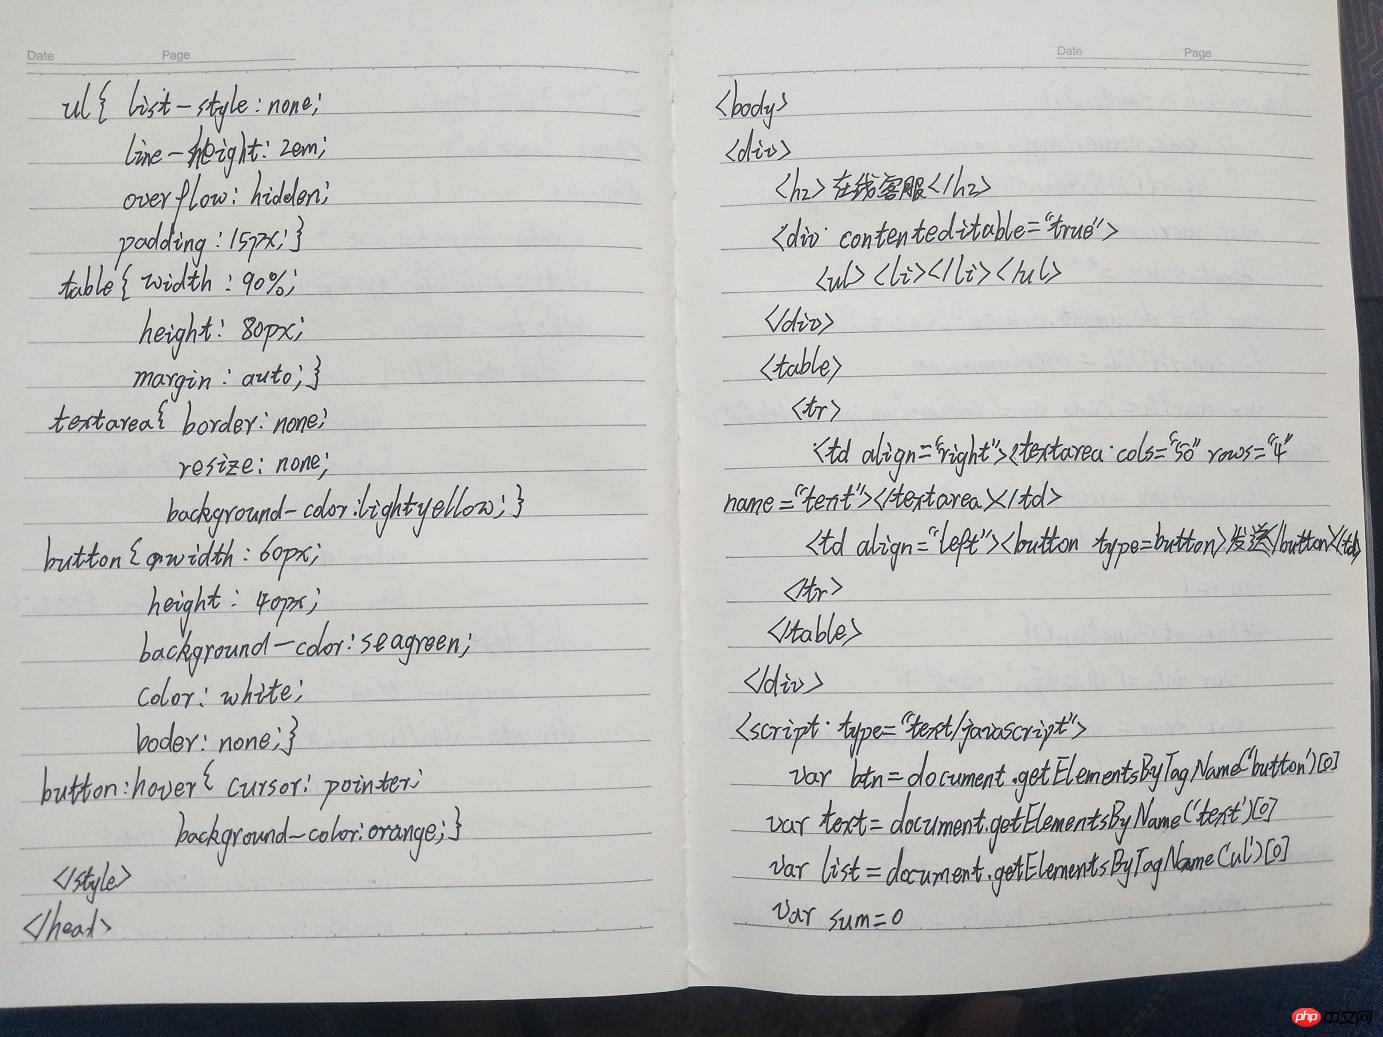 Date Page
ul{ list-style: none;
line-height: 2em;
overflow: hidden;
padding: 15px; }
table{ width: 90%;
height: 80px;
margin: auto; }
textarea{ border: none;
resize: none;
background-color: lightyellow; }
button{ width: 60px;
height: 40px;
background-color: seagreen;
color: white;
boder: none; }
button:hover{ cursor: pointer;
background-color: orange; }
</style>
</head>
Date Page
<body>
<div>
<h2>在线客服</h2>
<div contenteditable="true">
<ul><li></li></ul>
</div>
<table>
<tr>
<td align="right"><textarea cols="50" rows="4"
name="text"></textarea></td>
<td align="left"><button type=button>发送</button></td>
</tr>
</table>
</div>
<script type="text/javascript">
var btn=document.getElementsByTagName('button')[0]
var text=document.getElementsByName('text')[0]
var list=document.getElementsByTagName('ul')[0]
var sum=0
php中文网